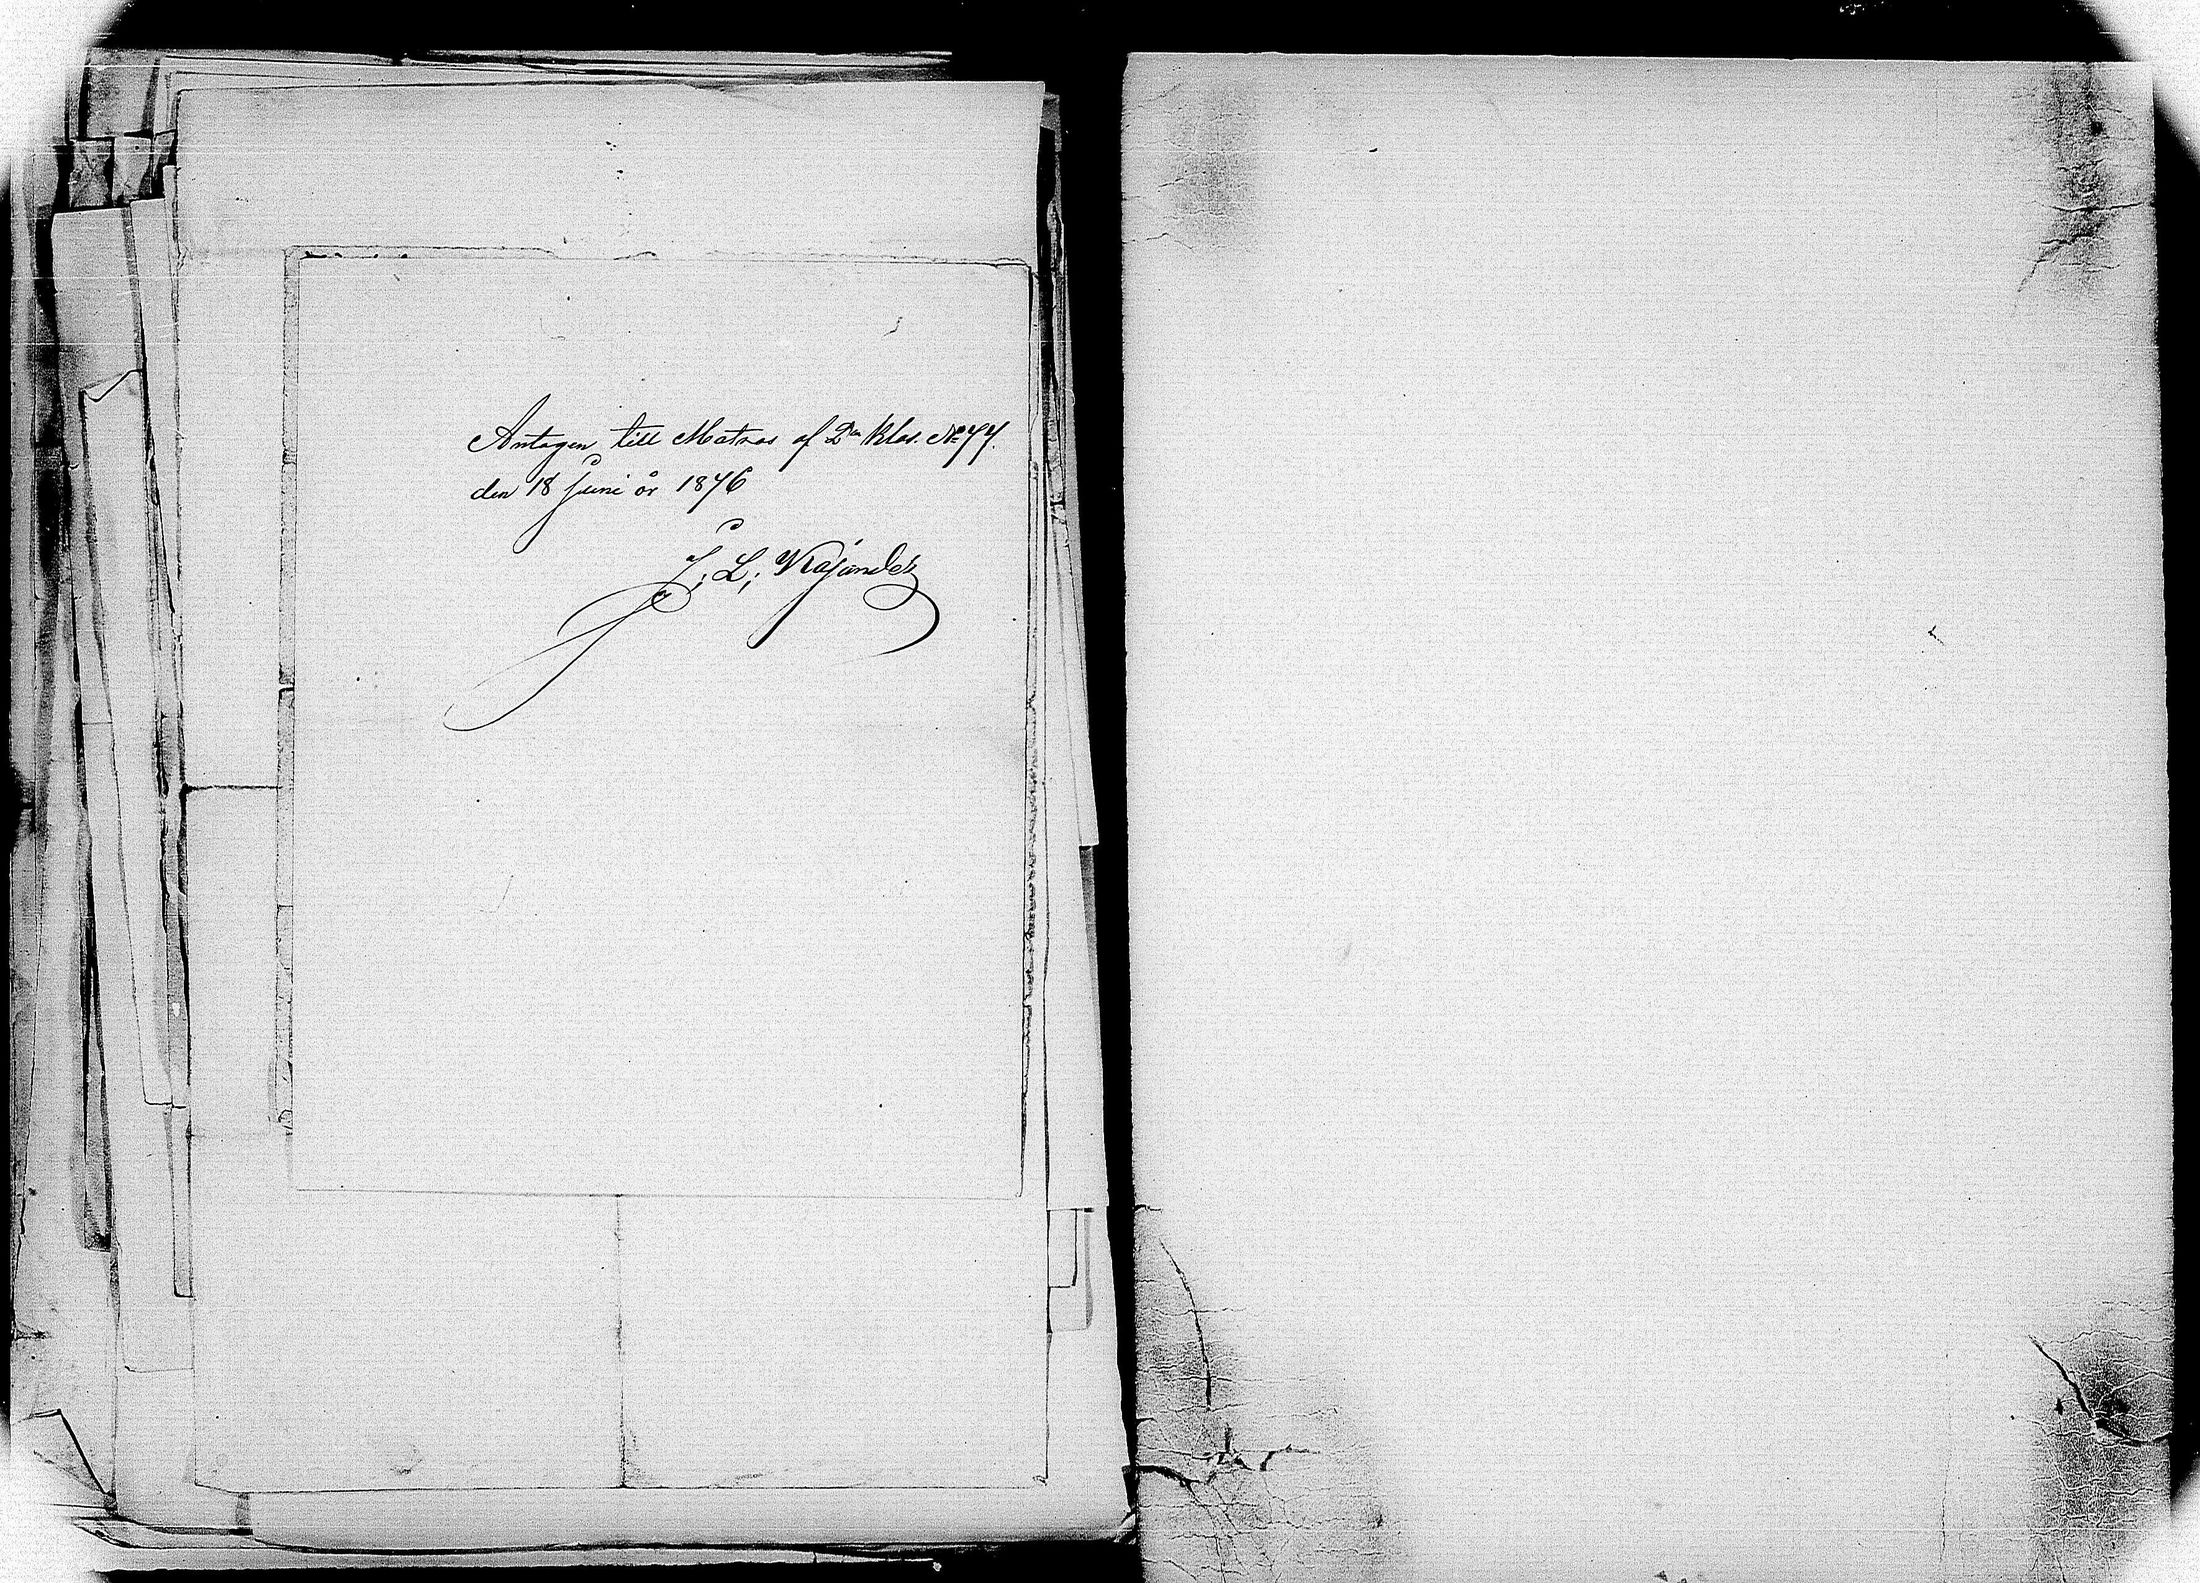 Antagen till Matros af 2ª Klas. Nº 77.
den 18 Juni år 1876
J. L. Kajander